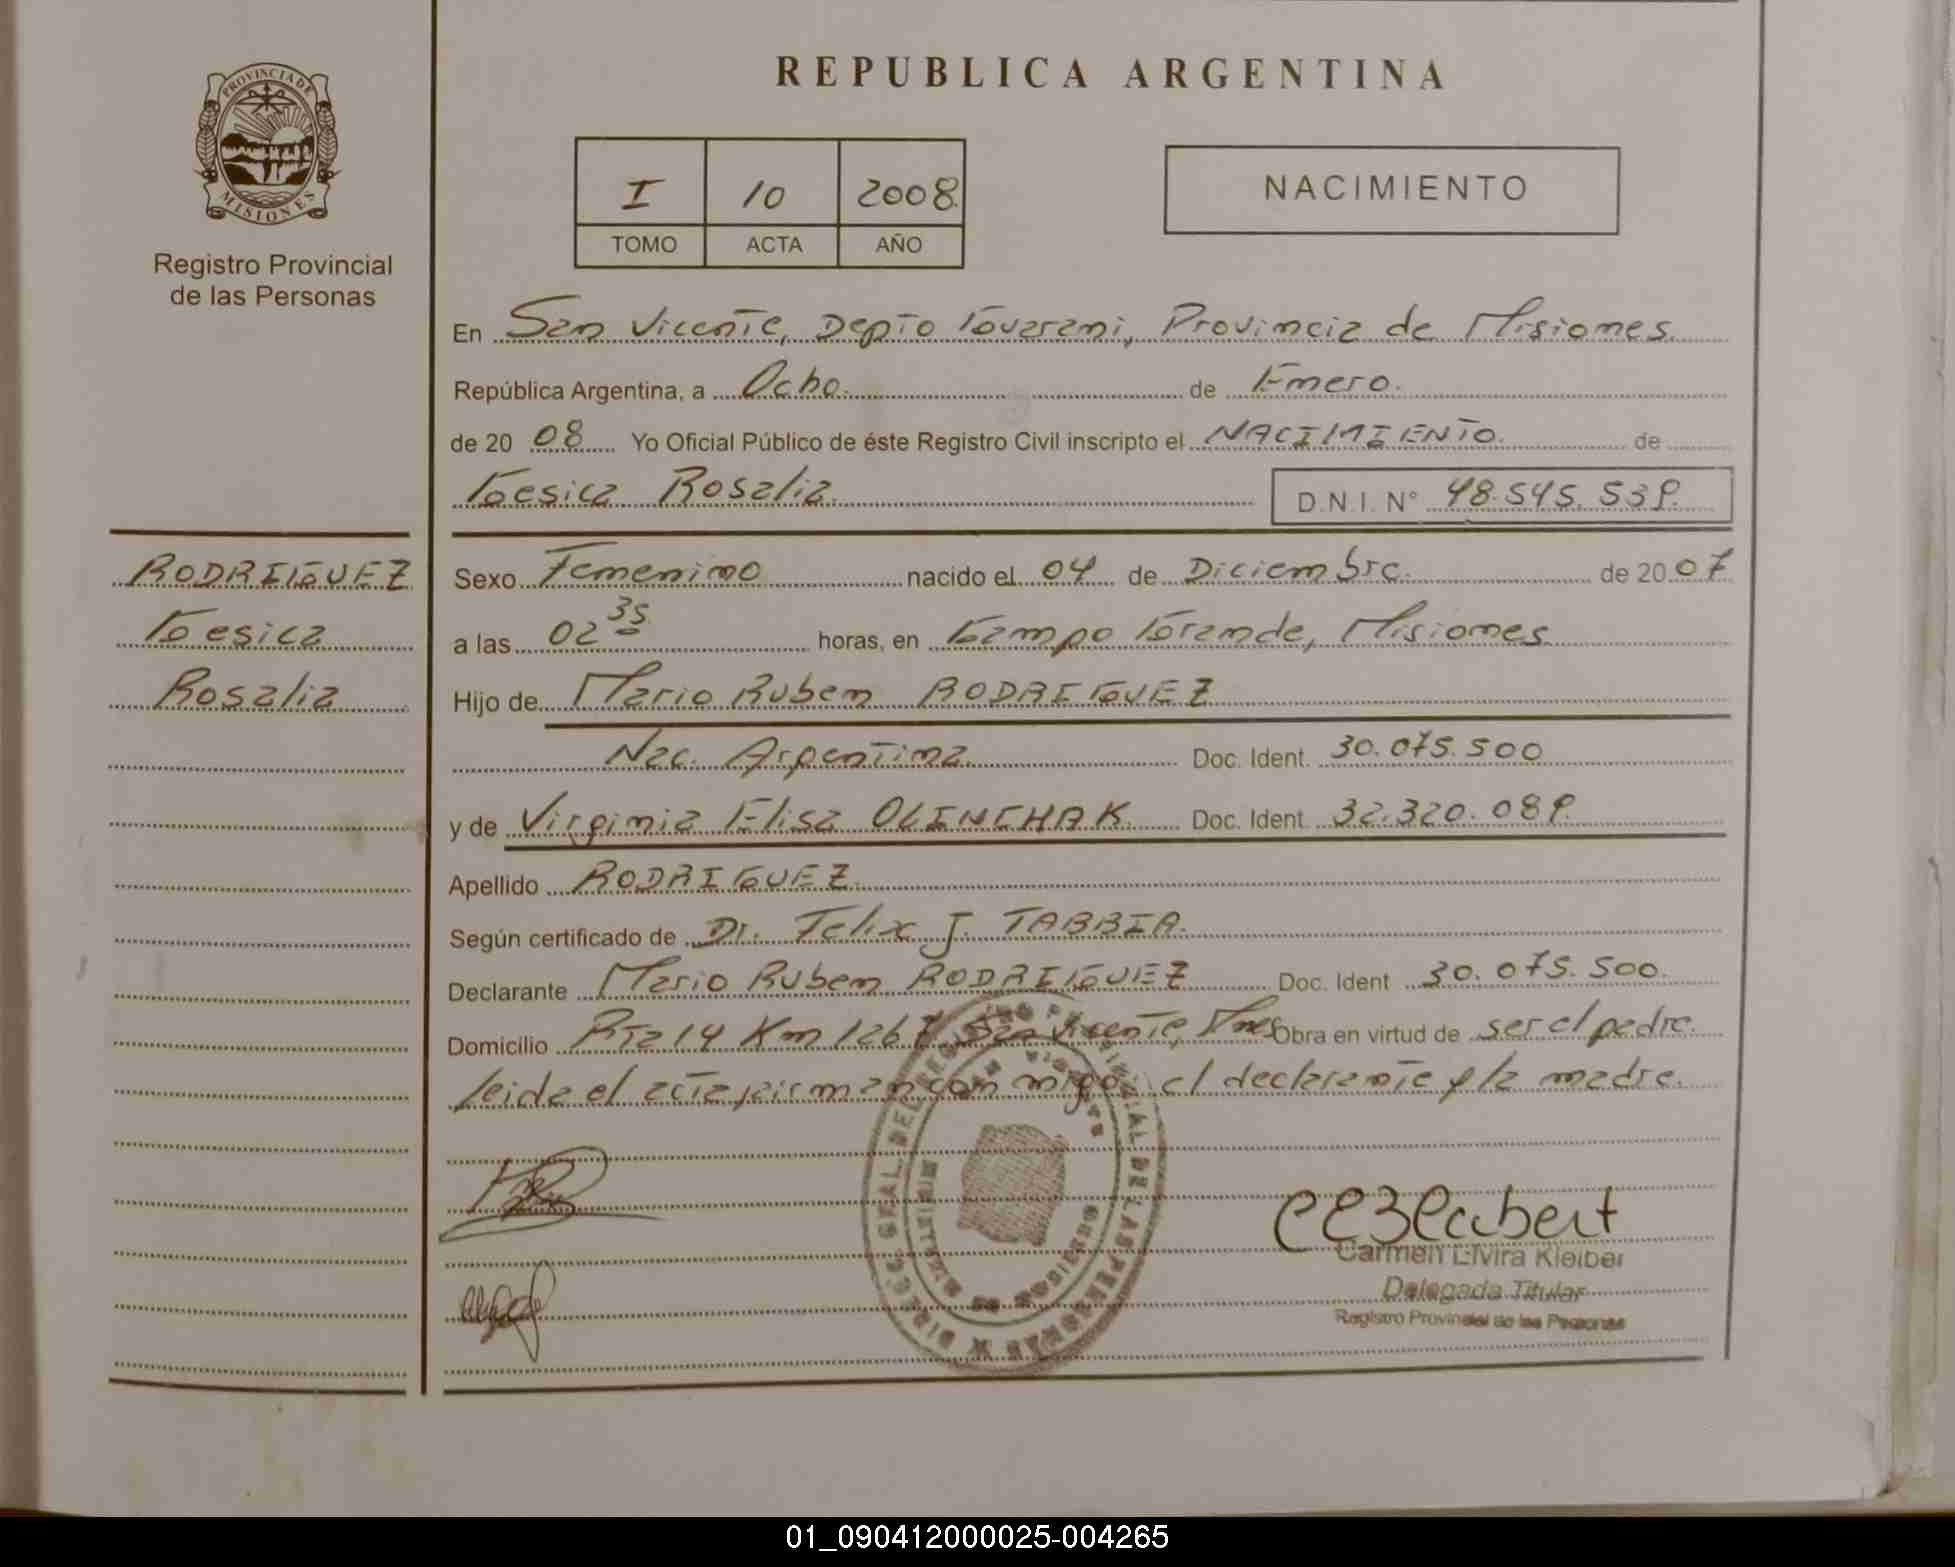 REPUBLICA ARGENTINA
PROVINCIA DE MISIONES
Registro Provincial
de las Personas
I 10 2008
TOMO ACTA AÑO
NACIMIENTO
En San Vicente, Depto Guarani, Provincia de Misiones
República Argentina, a Ocho. de Enero.
de 20 08 Yo Oficial Público de éste Registro Civil inscripto el NACIMIENTO de
Gesica Rosalia. D.N.I. Nº 48.545.539.
RODRIGUEZ
Gesica
Rosalia
Sexo Femenino nacido el 04 de Diciembre. de 20 07
a las 02 35 horas, en Campo Grande, Misiones
Hijo de Mario Ruben RODRIGUEZ
Nac. Argentina. Doc. Ident. 30.075.500
y de Virginia Elisa OLINCHAK. Doc. Ident. 32.320.089.
Apellido RODRIGUEZ.
Según certificado de Dr. Felix J. TABBIA.
Declarante Mario Ruben RODRIGUEZ Doc. Ident 30.075.500.
Domicilio Rta 14 Km 1267 San Vicente, Mnes Obra en virtud de ser el padre.
leida el acta, firman con migo, el declarante y la madre.
Carmen Elvira Kleiber
Delegada Titular
Registro Provincial de las Personas
01_090412000025-004265